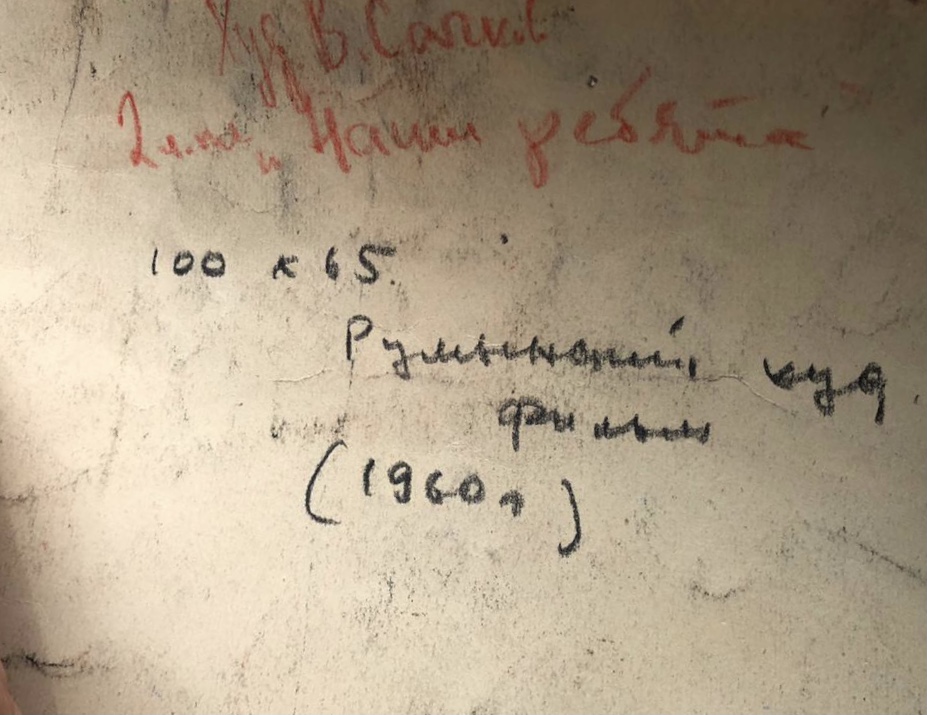 Худ В. Сачков
"Наши ребята"
100 х 65.
Румынский худ.
фильм
(1960г)